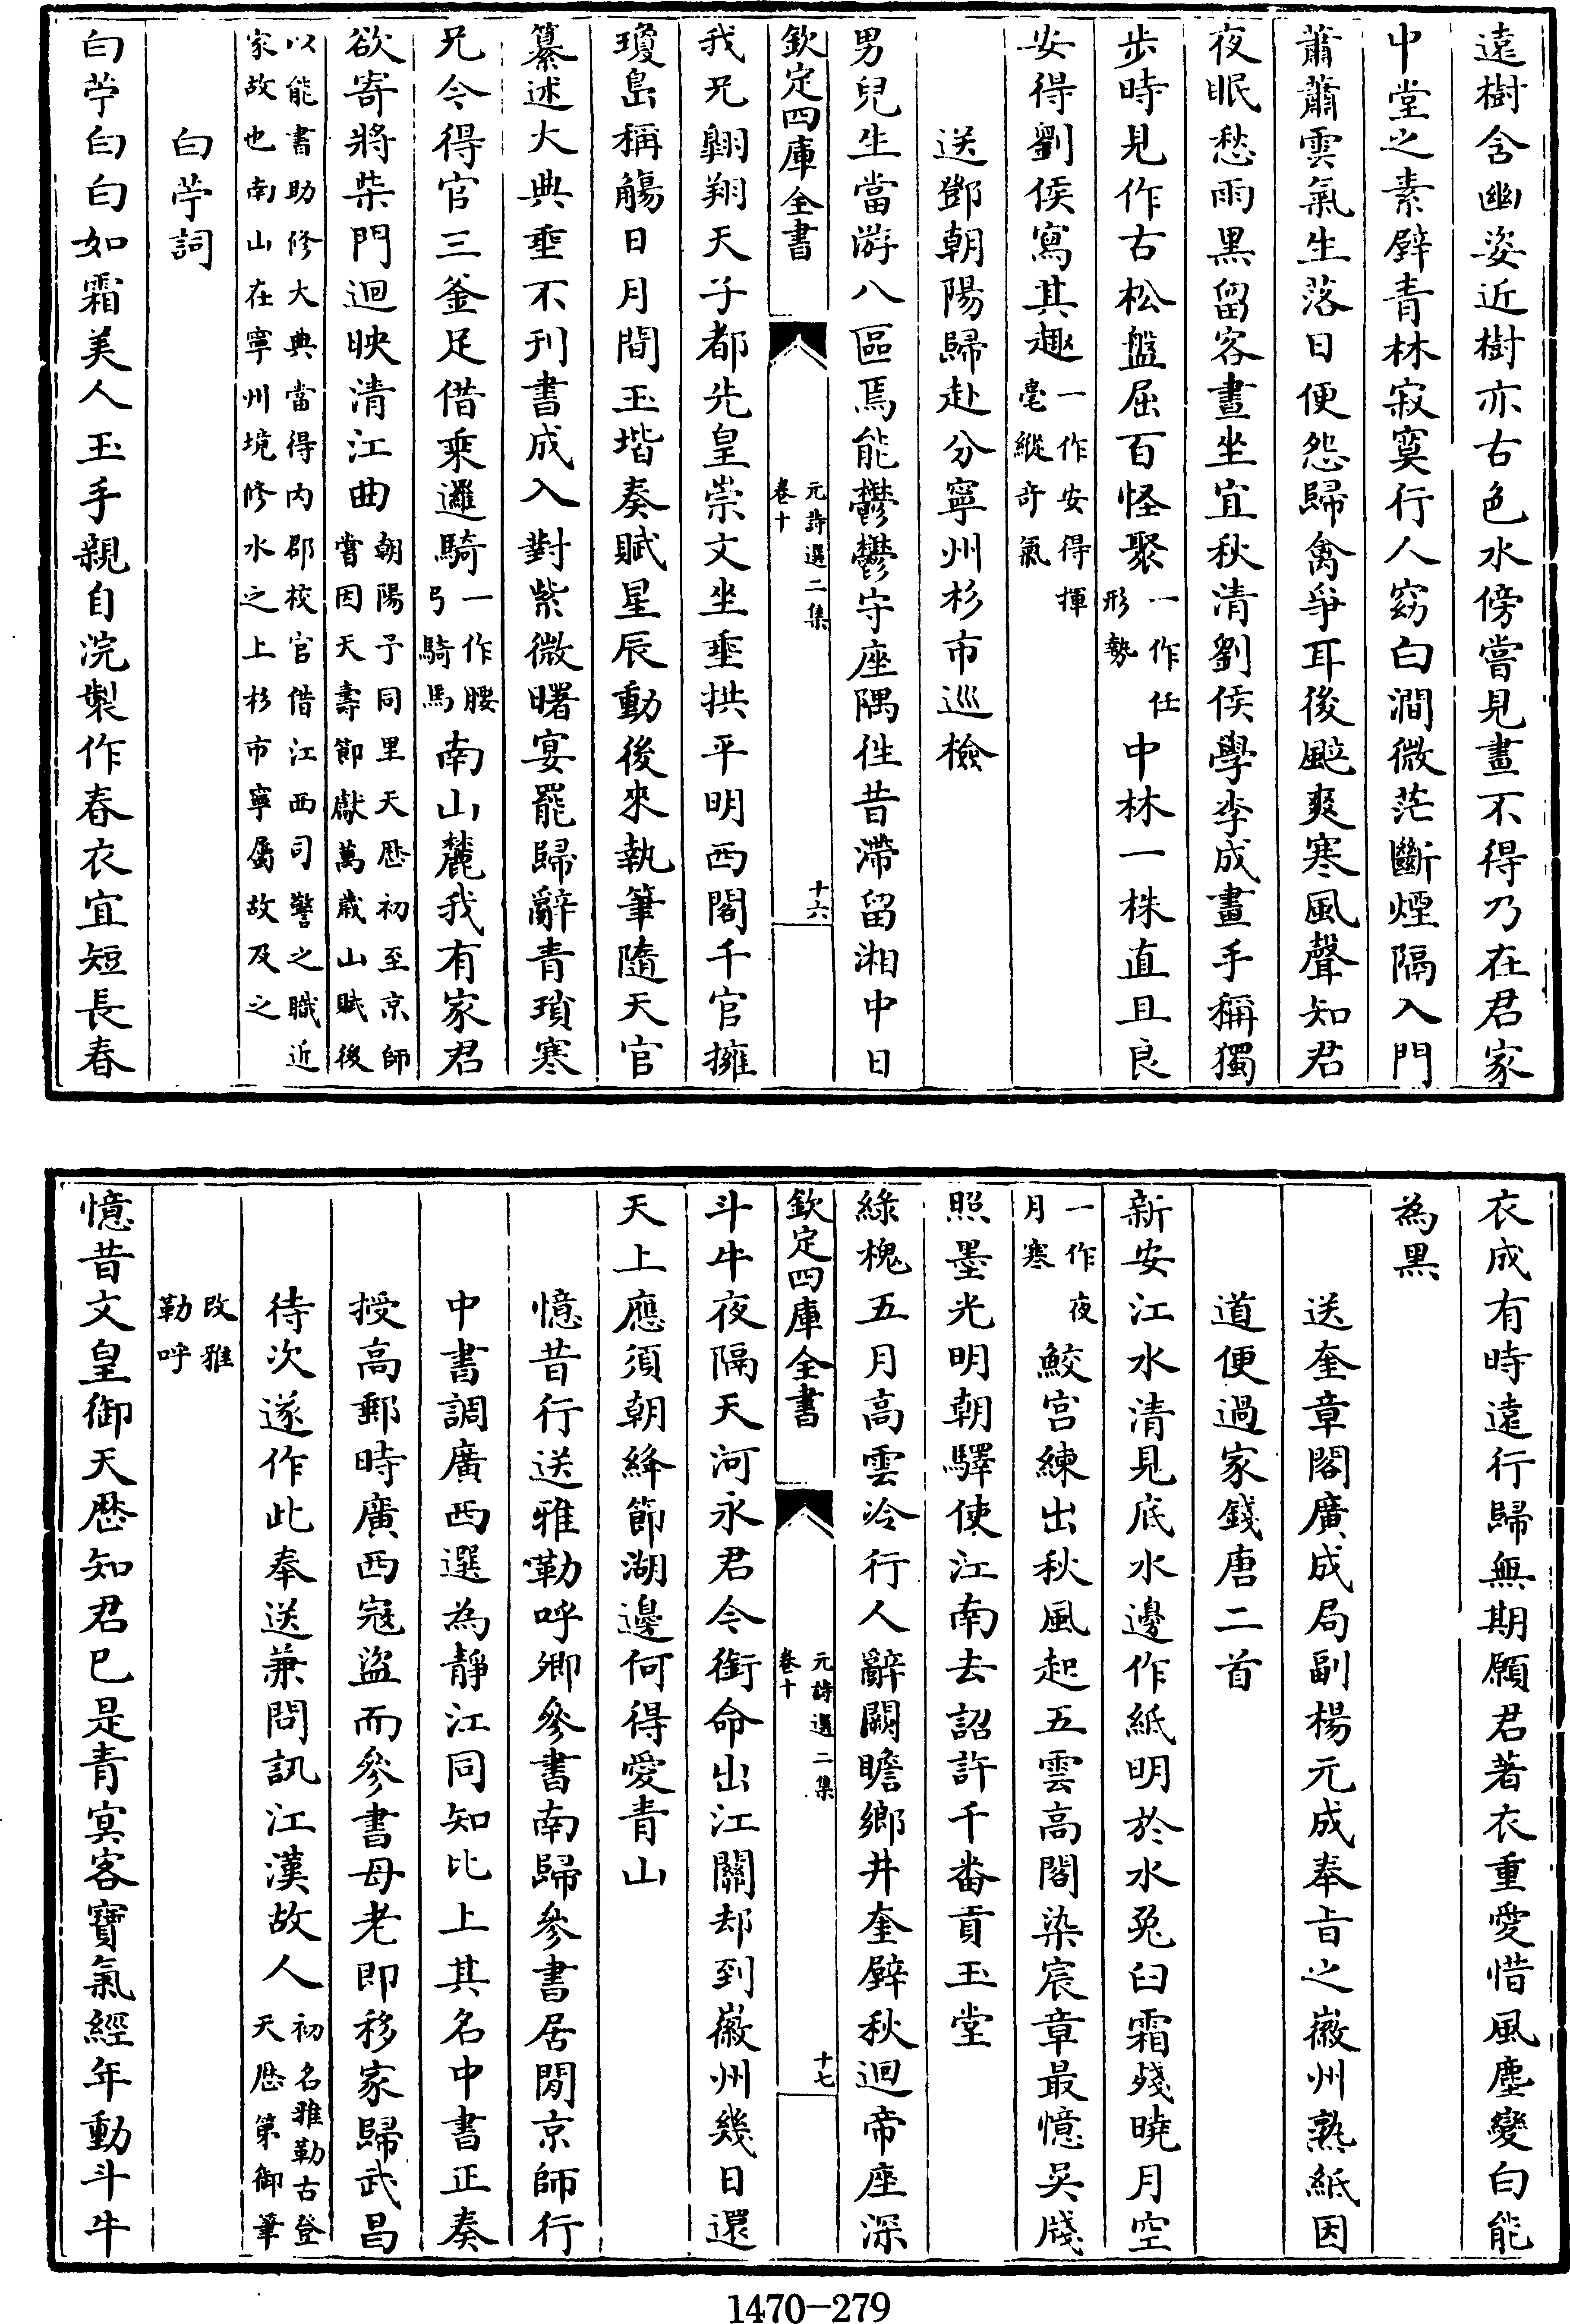 遠樹含幽姿近樹亦古色水傍嘗見畫不得乃在君家
中堂之素壁青林寂寞行人窈白澗微茫斷煙隔入門
蕭蕭雲氣生落日便怨歸禽爭耳後颼爽寒風聲知君
夜眠愁雨黑留客晝坐宜秋清劉侯學李成畫手稱獨
步時見作古松盤屈百怪聚一作任形勢中林一株直且良
安得劉侯寫其趣一作安得揮毫縱奇氣
送鄧朝陽歸赴分寧州杉市巡檢
男兒生當游八區焉能鬱鬱守座隅徃昔滯留湘中日
欽定四庫全書
元詩選二集
卷十
十六
我兄翺翔天子都先皇崇文坐垂拱平明西閣千官擁
瓊島稱觴日月間玉堦奏賦星辰動後來執筆隨天官
纂述大典垂不刊書成入對紫微曙宴罷歸辭青瑣寒
兄今得官三釜足借乘邏騎一作腰弓騎馬南山麓我有家君
欲寄將柴門迴映清江曲朝陽予同里天厯初至京師嘗因天壽節獻萬歲山賦後
以能書助修大典當得内郡校官借江西司警之職近家故也南山在寧州境修水之上杉市寧屬故及之
白苧詞
白苧白白如霜美人玉手親自浣製作春衣宜短長春
衣成有時遠行歸無期願君著衣重愛惜風塵變白能
為黑
送奎章閣廣成局副楊元成奉旨之徽州熟紙因
道便過家錢唐二首
新安江水清見底水邊作紙明於水兔臼霜殘曉月空
一作夜月寒鮫宮練出秋風起五雲高閣染宸章最憶吳牋
照墨光明朝驛使江南去詔許千番貢玉堂
綠槐五月高雲冷行人辭闕瞻鄉井奎壁秋迴帝座深
欽定四庫全書
元詩選二集
卷十
十七
斗牛夜隔天河永君今銜命出江關却到徽州幾日還
天上應須朝絳節湖邊何得愛青山
憶昔行送雅勒呼卿參書南歸參書居閒京師行
中書調廣西選為靜江同知比上其名中書正奏
授高郵時廣西寇盜而參書母老即移家歸武昌
待次遂作此奉送兼問訊江漢故人初名雅勒古登天厯第御筆
改雅勒呼
憶昔文皇御天厯知君已是青冥客寶氣經年動斗牛
1470—279